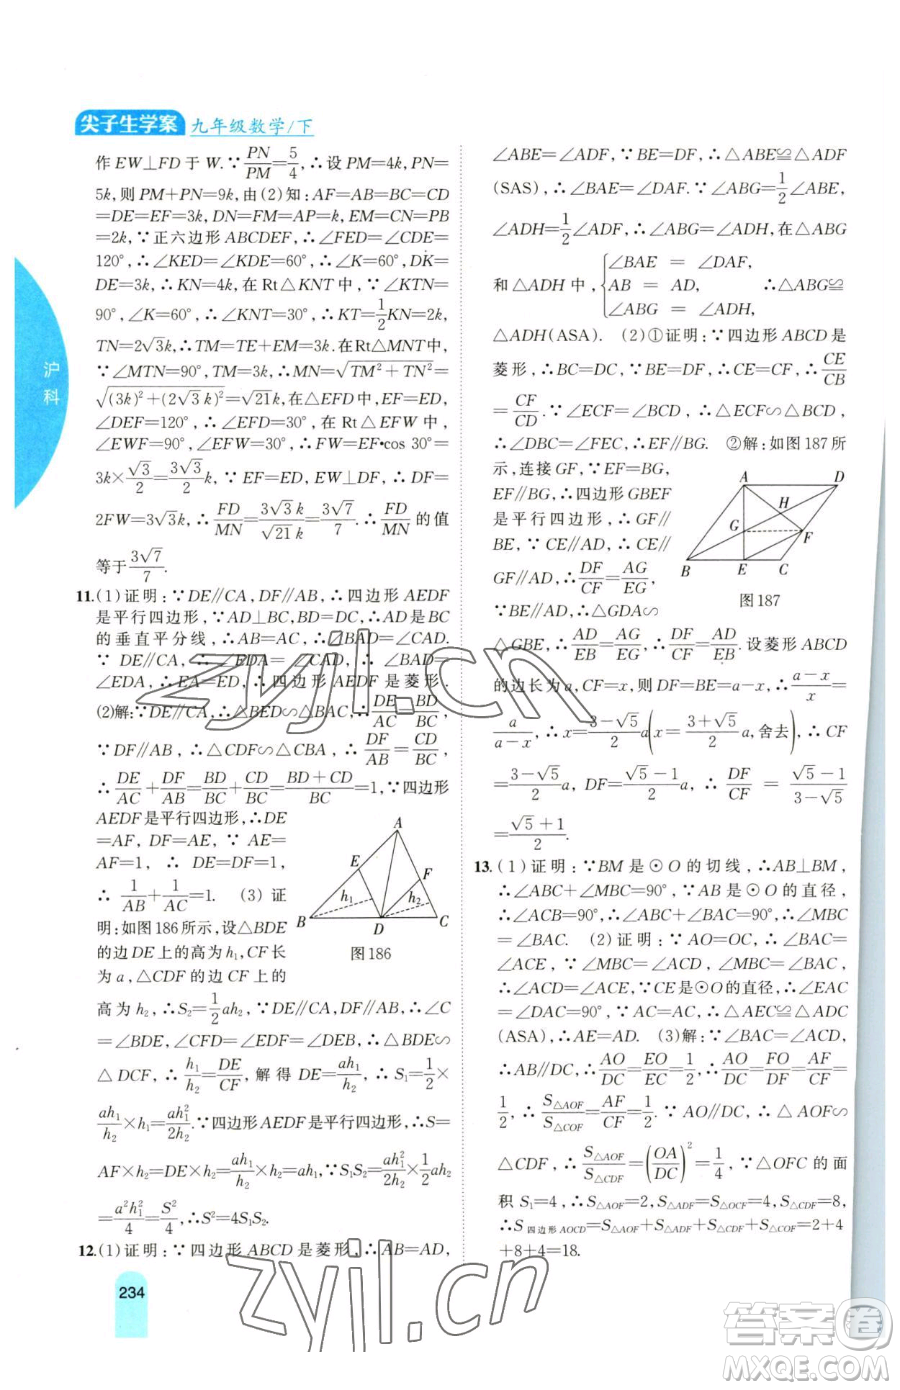 尖子生学案 九年级数学/下
作EW⊥FD于W.∵PN/PM=5/4,∴设PM=4k,PN=
5k,则PM+PN=9k,由(2)知:AF=AB=BC=CD
=DE=EF=3k,DN=FM=AP=k,EM=CN=PB
=2k,∵正六边形ABCDEF,∴∠FED=∠CDE=
120°,∴∠KED=∠KDE=60°,∴∠K=60°,DK=
DE=3k,∴KN=4k,在Rt△KNT中,∵∠KTN=
90°,∠K=60°,∴∠KNT=30°,∴KT=1/2KN=2k,
TN=2√3k,∴TM=TE+EM=3k.在Rt△MNT中,
∵∠MTN=90°,TM=3k,∴MN=√(TM²+TN²)=
√((3k)²+(2√3k)²)=√21k,在△EFD中,EF=ED=3k,
∠DEF=120°,∴∠EFD=30°,在Rt△EFW中,
∠EWF=90°,∠EFW=30°,∴FW=EF•cos 30°=
3k×√3/2=3√3/2k,∵EF=ED,EW⊥DF,∴DF=
2FW=3√3k,∴FD/MN=3√3k/√21k=3√7/7.∴FD/MN的值
等于3√7/7.
11.(1)证明:∵DE//CA,DF//AB,∴四边形AEDF
是平行四边形,∵AD⊥BC,BD=DC,∴AD是BC
的垂直平分线,∴AB=AC,∴∠BAD=∠CAD.
∵DE//CA,∴∠EDA=∠CAD,∴∠BAD=
∠EDA,∴EA=ED,∴四边形AEDF是菱形.
(2)解:∵DE//CA,∴△BED∽△BAC,∴DE/AC=BD/BC,
∵DF//AB,∴△CDF∽△CBA,∴DF/AB=CD/BC,
∴DE/AC+DF/AB=BD/BC+CD/BC=BD+CD/BC=1,∵四边形
AEDF是平行四边形,∴DE
=AF,DF=AE,∵AE=
AF=1,∴DE=DF=1,
∴1/AB+1/AC=1. (3)证
明:如图186所示,设△BDE
的边DE上的高为h₁,CF长
为a,△CDF的边CF上的
高为h₂,∴S₂=1/2ah₂,∵DE//CA,DF//AB,∴∠C
=∠BDE,∠CFD=∠EDF=∠DEB,∴△BDE∽
△DCF,∴h₁/h₂=DE/CF,解得DE=ah₁/h₂,∴S₁=1/2×
ah₁/h₂×h₁=ah₁²/2h₂.∵四边形AEDF是平行四边形,∴S=
AF×h₂=DE×h₂=ah₁/h₂×h₂=ah₁,∵S₁S₂=ah₁²/2h₂×1/2ah₂
=a²h₁²/4=S²/4,∴S²=4S₁S₂.
12.(1)证明:∵四边形ABCD是菱形,∴AB=AD,
A
E
F
h₁
h₂
B
D
C
图186
∠ABE=∠ADF,∵BE=DF,∴△ABE≌△ADF
(SAS),∴∠BAE=∠DAF.∵∠ABG=1/2∠ABE,
∠ADH=1/2∠ADF,∴∠ABG=∠ADH,在△ABG
和△ADH中,{∠BAE=∠DAF, AB=AD, ∠ABG=∠ADH, ∴△ABG≌
△ADH(ASA). (2)①证明:∵四边形ABCD是
菱形,∴BC=CD,∵BE=DF,∴CE=CF,∴CE/CB
=CF/CD.∵∠ECF=∠BCD,∴△ECF∽△BCD,
∴∠DBC=∠FEC,∴EF//BG. ②解:如图187所
示,连接GF,∵EF=BG,
EF//BG,∴四边形GBEF
是平行四边形,∴GF//
BE,∵CE//AG,CE=CF,
GF//AD,∴DF/CF=AG/EG,
∵BE//AD,∴△GDA∽
△GBE,∴AD/BE=AG/EG,∴DF/CF=AD/EB.设菱形ABCD
的边长为a,CF=x,则DF=BE=a-x,∴a-x/x=
a/a-x,∴x=3-√5/2a(x=3+√5/2a,舍去),∴CF
=3-√5/2a,DF=√5-1/2a,∴DF/CF=√5-1/3-√5=
√5+1/2.
A
D
H
G
F
B
E
C
图187
13.(1)证明:∵BM是⊙O的切线,∴AB⊥BM,
∴∠ABC+∠MBC=90°,∵AB是⊙O的直径,
∴∠ACB=90°,∴∠ABC+∠BAC=90°,∴∠MBC
=∠BAC. (2)证明:∵AO=OC,∴∠BAC=
∠ACE,∵∠MBC=∠ACD,∠MBC=∠BAC,
∴∠ACD=∠ACE,∵CE是⊙O的直径,∴∠EAC
=∠DAC=90°,∵AC=AC,∴△AEC≌△ADC
(ASA),∴AE=AD. (3)解:∵∠BAC=∠ACD,
∴AO//DC,∴AO/DC=EO/EC=1/2,∴AO/DC=FO/DF=AF/CF=
1/2,∴S△AOF/S△COF=AF/CF=1/2.∵AO//DC,∴△AOF∽
△CDF,∴S△AOF/S△CDF=(OA/DC)²=1/4,∵△OFC的面
积S₁=4,∴S△AOF=2,S△ADF=S△OCF=4,S△CDF=8,
∴S四边形AOCD=S△AOF+S△ADF+S△CDF+S△COF=2+4
+8+4=18.
沪科
234
zyjl.cn
zyjl.cn
答案卷
MXQE.COM